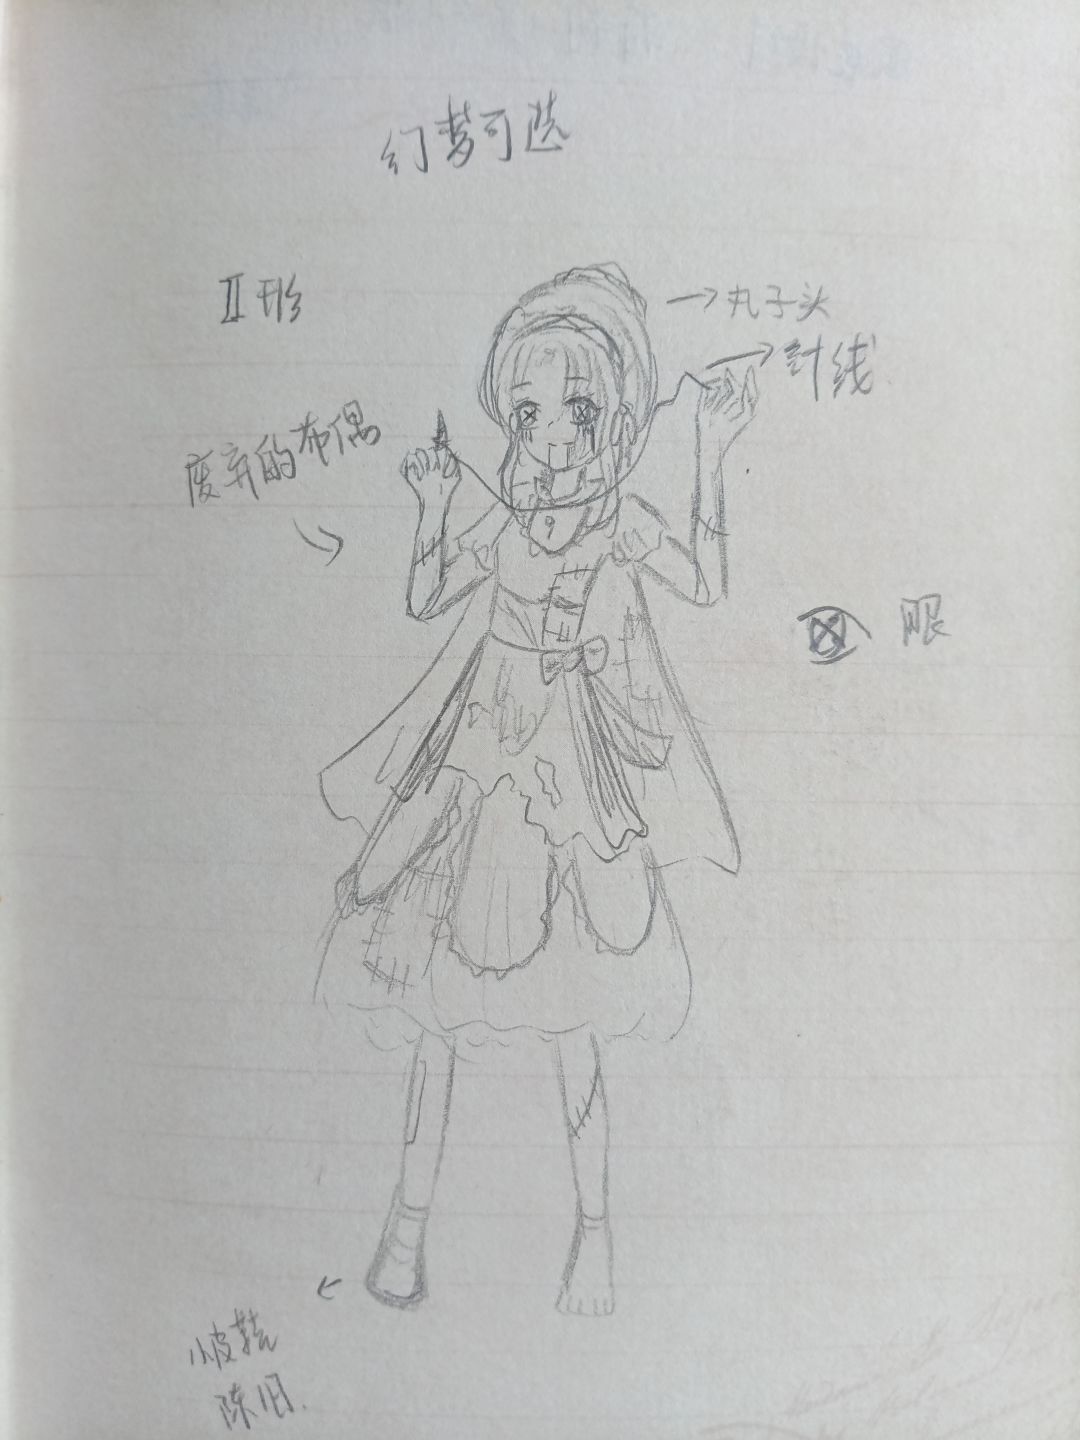 幻梦可选
Ⅱ形
→丸子头
→针线
废弃的布偶
眼
小皮鞋
陈旧.